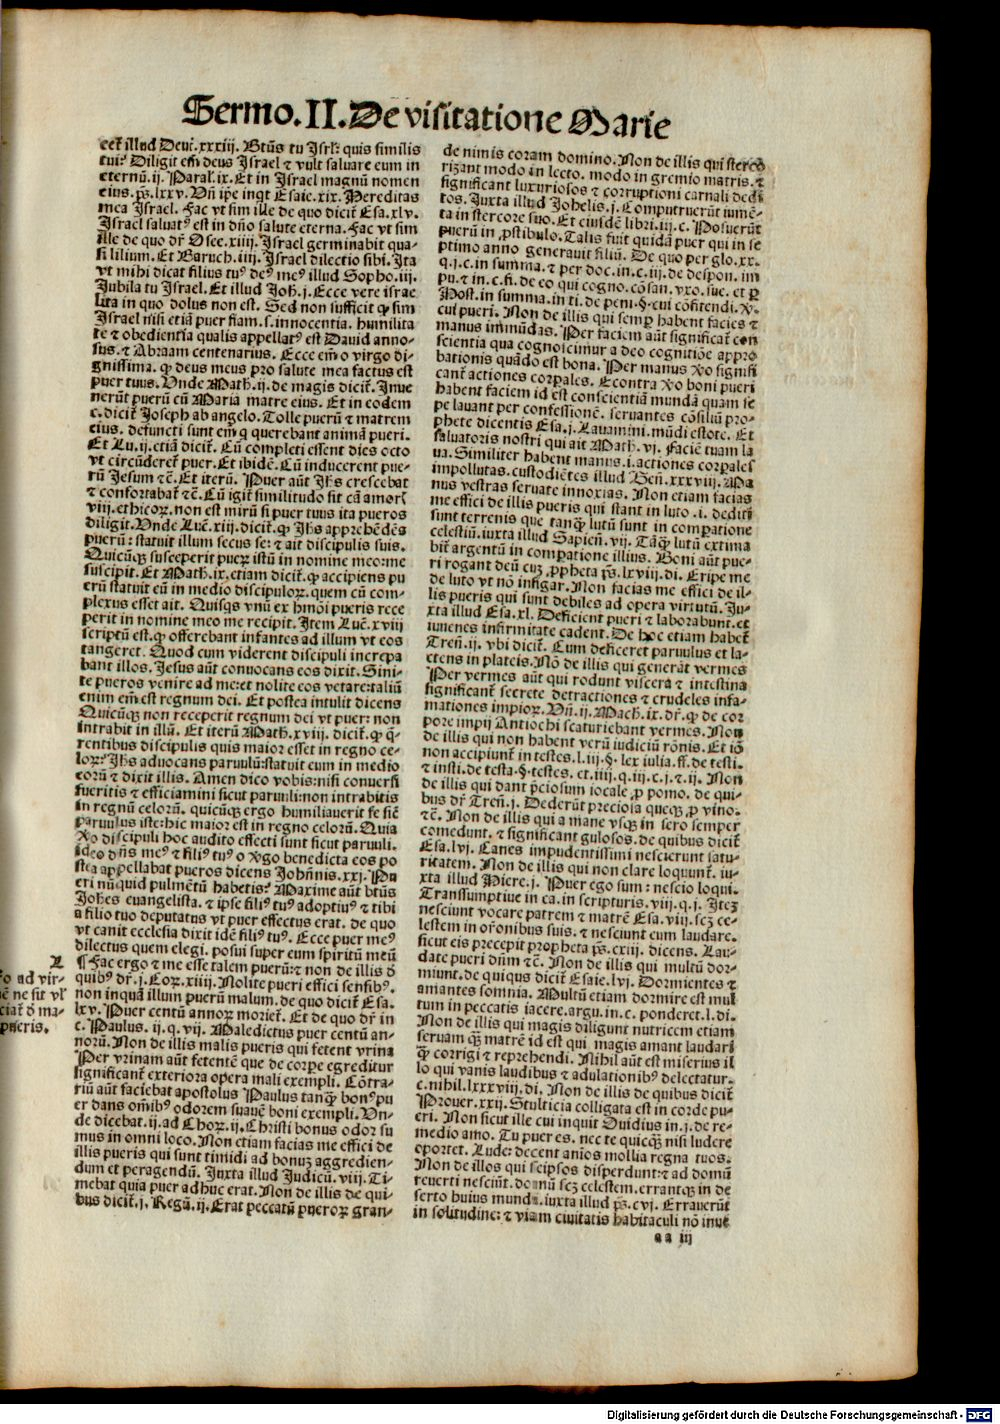 Sermo.II.De visitatione Marie
eet̄ illud Deut̄.xxxiij. Btūs tu Isrl̄: quis similis
tui? Diligit em̄ deus Israel ⁊ vult saluare eum in
eternū.ij. Paral̄.ix. Et in Israel magnū nomen
eius. ps̄.lxxv. Vn̄ ip̄e inqt Esaie.xix. Hereditas
mea Israel. Fac vt sim ille de quo dicit̄ Esa.xlv.
Israel saluatꝰ est in dn̄o salute eterna. Fac vt sim
ille de quo dr̄ Osee.xiiij. Israel germinabit qua-
si lilium. Et Baruch.iiij. Israel dilectio sibi. Ita
vt mihi dicat filius tuꝰ deꝰ meꝰ illud Sopho.iij.
Iubila tu Israel. Et illud Joh̄.j. Ecce vere israe
lita in quo dolus non est. Sed non sufficit ꝙ sim
Israel nisi etiā puer fiam.s. innocentia. humilita
te ⁊ obedientia qualis appellatꝰ est Dauid anno-
sus. ⁊ Abraam centenarius. Ecce em̄ o virgo di-
gnissima. ꝙ deus meus pro salute mea factus est
puer tuus. Vnde Math̄.ij. de magis dicit̄. Inue
nerūt puerū cū Maria matre eius. Et in eodem
c. dicit̄ Joseph ab angelo. Tolle puerū ⁊ matrem
eius. defuncti sunt em̄ q̄ querebant animā pueri.
Et Lu.ij. etiā dicit̄. Cū completi essent dies octo
vt circūderet̄ puer. Et ibidē. Cū inducerent pue-
rū Jesum ⁊c̄. Et iterū. Puer aūt Jh̄s crescebat
⁊ confortabat̄ ⁊c̄. Cū igit̄ similitudo sit cā amorꝭ
viij. ethicoꝝ. non est mirū si pueꝝ tuus ita pueros
diligit. Vnde Luc̄.xiij. dicit̄. ꝙ Jh̄s apprehēdēs
puerū: statuit illum secus se: ⁊ ait discipulis suis.
Quicūqꝫ susceperit pueꝝ istū in nomine meo: me
suscipit. Et Math̄.ix. etiam dicit̄. ꝙ accipiens pu
erū statuit eū in medio discipuloꝝ. quem cū com-
plexus esset ait. Quisqs vnū ex hm̄oi pueris rece
perit in nomine meo me recipit. Item Luc̄.xviij
scriptū est. ꝙ offerebant infantes ad illum vt eos
tangeret. Quod cum viderent discipuli increpa
bant illos. Jesus aūt conuocans eos dixit. Sini-
te pueros venire ad me: et nolite eos vetare: taliū
enim em̄ est regnum dei. Et postea intulit dicens
Quicūqꝫ non receperit regnum dei vt puer: non
intrabit in illū. Et iterū Math̄.xviij. dicit̄. ꝙ q̄-
rentibus discipulis quis maior esset in regno ce-
loꝝ: Jh̄s aduocans paruulū: statuit eum in medio
eorū ⁊ dixit illis. Amen dico vobis: nisi conuersi
fueritis ⁊ efficiamini sicut paruuli: non intrabitis
in regnū celorū. quicūqꝫ ergo humiliauerit se sic̄
paruulus iste: hic maior est in regno celorū. Quia
xo discipuli hoc audito effecti sunt sicut paruuli.
ideo dn̄s meꝰ ⁊ filiꝰ tuꝰ o xgo benedicta eos po
stea appellabat pueros dicens Johānis.xxj. Pu
eri nūquid pulmētū habetis? Maxime aūt btūs
Joh̄es euangelista. ⁊ ipse filiꝰ tuꝰ adoptiuꝰ ⁊ tibi
a filio tuo deputatus vt puer effectus erat. de quo
vt canit ecclesia dixit idē filiꝰ tuꝰ. Ecce puer meꝰ
dilectus quem elegi. posui super eum spiritū meū
¶ Fac ergo ⁊ me esse talem puerū: ⁊ non de illis d̄
quibꝰ dr̄.j. Coꝝ.xiiij. Nolite pueri effici sensibꝰ.
non inquā illum puerū malum. de quo dicit̄ Esa.
lxv. Puer centū annoꝝ moriet̄. Et de quo dr̄ in
c. Paulus.ij.q.vij. Maledictus puer centū an-
norū. Non de illis malis pueris qui fetent vrina
Per vrinam aūt fetentē que de corpe egreditur
significant̄ exteriora opera mali exempli. Cōtra-
riū aūt faciebat apostolus Paulus tanqꝫ bonꝰ pu
er dans om̄ibꝰ odorem suauē boni exempli. Vn-
de dicebat.ij. ad Choꝝ.ij. Christi bonus odor su
mus in omni loco. Non etiam facias me effici de
illis pueris qui sunt timidi ad bonuꝫ aggredien-
dum et peragendū. Iuxta illud Judicū.viij. Ti-
mebat quia puer adhuc erat. Non de illis de qui-
bus dicit̄.j. Regū.ij. Erat peccatū pueroꝝ gran-
L
o ad vir-
ē ne sit vl̄
ciat̄ d̄ ma-
pueris.
de nimis coram domino. Non de illis qui stercō
rizant modo in lecto. modo in gremio matris. ⁊
significant luxuriosos ⁊ corruptioni carnali dedi
tos. Iuxta illud Johelis.j. Computruerūt iumē-
ta in stercore suo. Et eiusdē libri.iij.c. Posuerūt
puerū in ꝓstibulo. Talis fuit quidā puer qui in se
ptimo anno generauit filiū. De quo per glo.xx.
q.j.c. in summa. ⁊ per doc. in.c.iij. de despon. im
pu. ⁊ in.c.fi. de eo qui cogno. cōsan. vxo. sue. et ꝑ
Host. in summa. in ti. de peni.§. cui cōfitendi. x.
cui pueri. Non de illis qui semꝑ habent facies ⁊
manus immūdas. Per faciem aūt significat̄ con
scientia qua cognoscimur a deo cognitiōe appro
bationis quādo est bona. Per manus xo signifi
cant̄ actiones corpales. Econtra xo boni pueri
habent faciem id est conscientiā mundā quam se
pe lauant per confessionē. seruantes cōsiliū pro-
phete dicentis Esa.j. Lauamini. mūdi estote. Et
saluatoris nostri qui ait Math̄.vj. Faciē tuam la
ua. Similiter habent manus.i. actiones corpales
impollutas. custodiētes illud Gen̄.xxxviij. Ma
nus vestras seruate innoxias. Non etiam facias
me effici de illis pueris qui stant in luto.i. dediti
sunt terrenis que tanqꝫ lutū sunt in compatione
celestiū. iuxta illud Sapien̄.vij. Tāqꝫ lutū extima
bit̄ argentū in compatione illius. Boni aūt pue-
ri rogant deū cuꝫ ꝓpheta ps̄.lxviij. di. Eripe me
de luto vt nō infigar. Non facias me effici de il-
lis pueris qui sunt debiles ad opera virtutū. Iu-
xta illud Esa.xl. Deficient pueri ⁊ laborabunt. et
iuuenes infirmitate cadent. De hoc etiam habet̄
Tren̄.ij. vbi dicit̄. Cum deficeret paruulus et la-
ctens in plateis. Nō de illis qui generāt vermes
Per vermes aūt qui rodunt viscera ⁊ intestina
significant̄ secrete detractiones ⁊ crudeles infa-
mationes impioꝝ. Vn̄.ij. Mach̄.ix. dr̄. ꝙ de cor
pore impij Antiochi scaturiebant vermes. Non
de illis qui non habent verū iudiciū rōnis. Et iō
non accipiunt̄ in testes. l.iij.§. lex iulia. ff. de testi.
⁊ insti. de testa.§. testes. et.iiij.q.iij.c.j. ⁊.ij. Non
de illis qui dant p̄ciosum iocale ꝓ pomo. de qui-
bus dr̄ Tren̄.j. Dederūt preciosa queqꝫ ꝓ vino.
⁊c̄. Non de illis qui a mane vsqꝫ in sero semper
comedunt. ⁊ significant gulosos. de quibus dicit̄
Esa.lvj. Canes impudentissimi nescierunt satu-
ritatem. Non de illis qui non clare loquunt̄. iu-
xta illud Hiere.j. Puer ego sum: nescio loqui.
Transsumptiue in ca. in scripturis.viij.q.j. Iteꝫ
nesciunt vocare patrem ⁊ matrē Esa.viij. scꝫ ce-
lestem in or̄onibus suis. ⁊ nesciunt eum laudare.
sicut eis precepit propheta ps̄.cxij. dicens. Lau-
date pueri dn̄m ⁊c̄. Non de illis qui multū dor-
miunt. de quiqus dicit̄ Esaie.lvj. Dormientes ⁊
amantes somnia. Multū etiam dormire est mul
tum in peccatis iacere. argu. in.c. ponderet.l.di.
Non de illis qui magis diligunt nutricem etiam
seruam qꝫ matrē id est qui magis amant laudari
qꝫ corrigi ⁊ reprehendi. Nihil aūt est miserius il
lo qui vanis laudibus ⁊ adulationibꝰ delectatur.
c. nihil.lxxxviij.di. Non de illis de quibus dicit̄
Prouer.xxij. Stulticia colligata est in corde pu-
eri. Non sicut ille cui inquit Ouidius in.j. de re-
medio amo. Tu puer es. nec te quicqꝫ nisi ludere
oportet. Lude: decent annos mollia regna tuos.
Non de illos qui seipsos disperdunt: ⁊ ad domū
reuerti nesciūt. domū scꝫ celestem. errantqꝫ in de
serto huius mundi. iuxta illud ps̄.cvj. Errauerūt
in solitudine: ⁊ viam ciuitatis habitaculi nō inue
aa iij
Digitalisierung gefördert durch die Deutsche Forschungsgemeinschaft - DFG